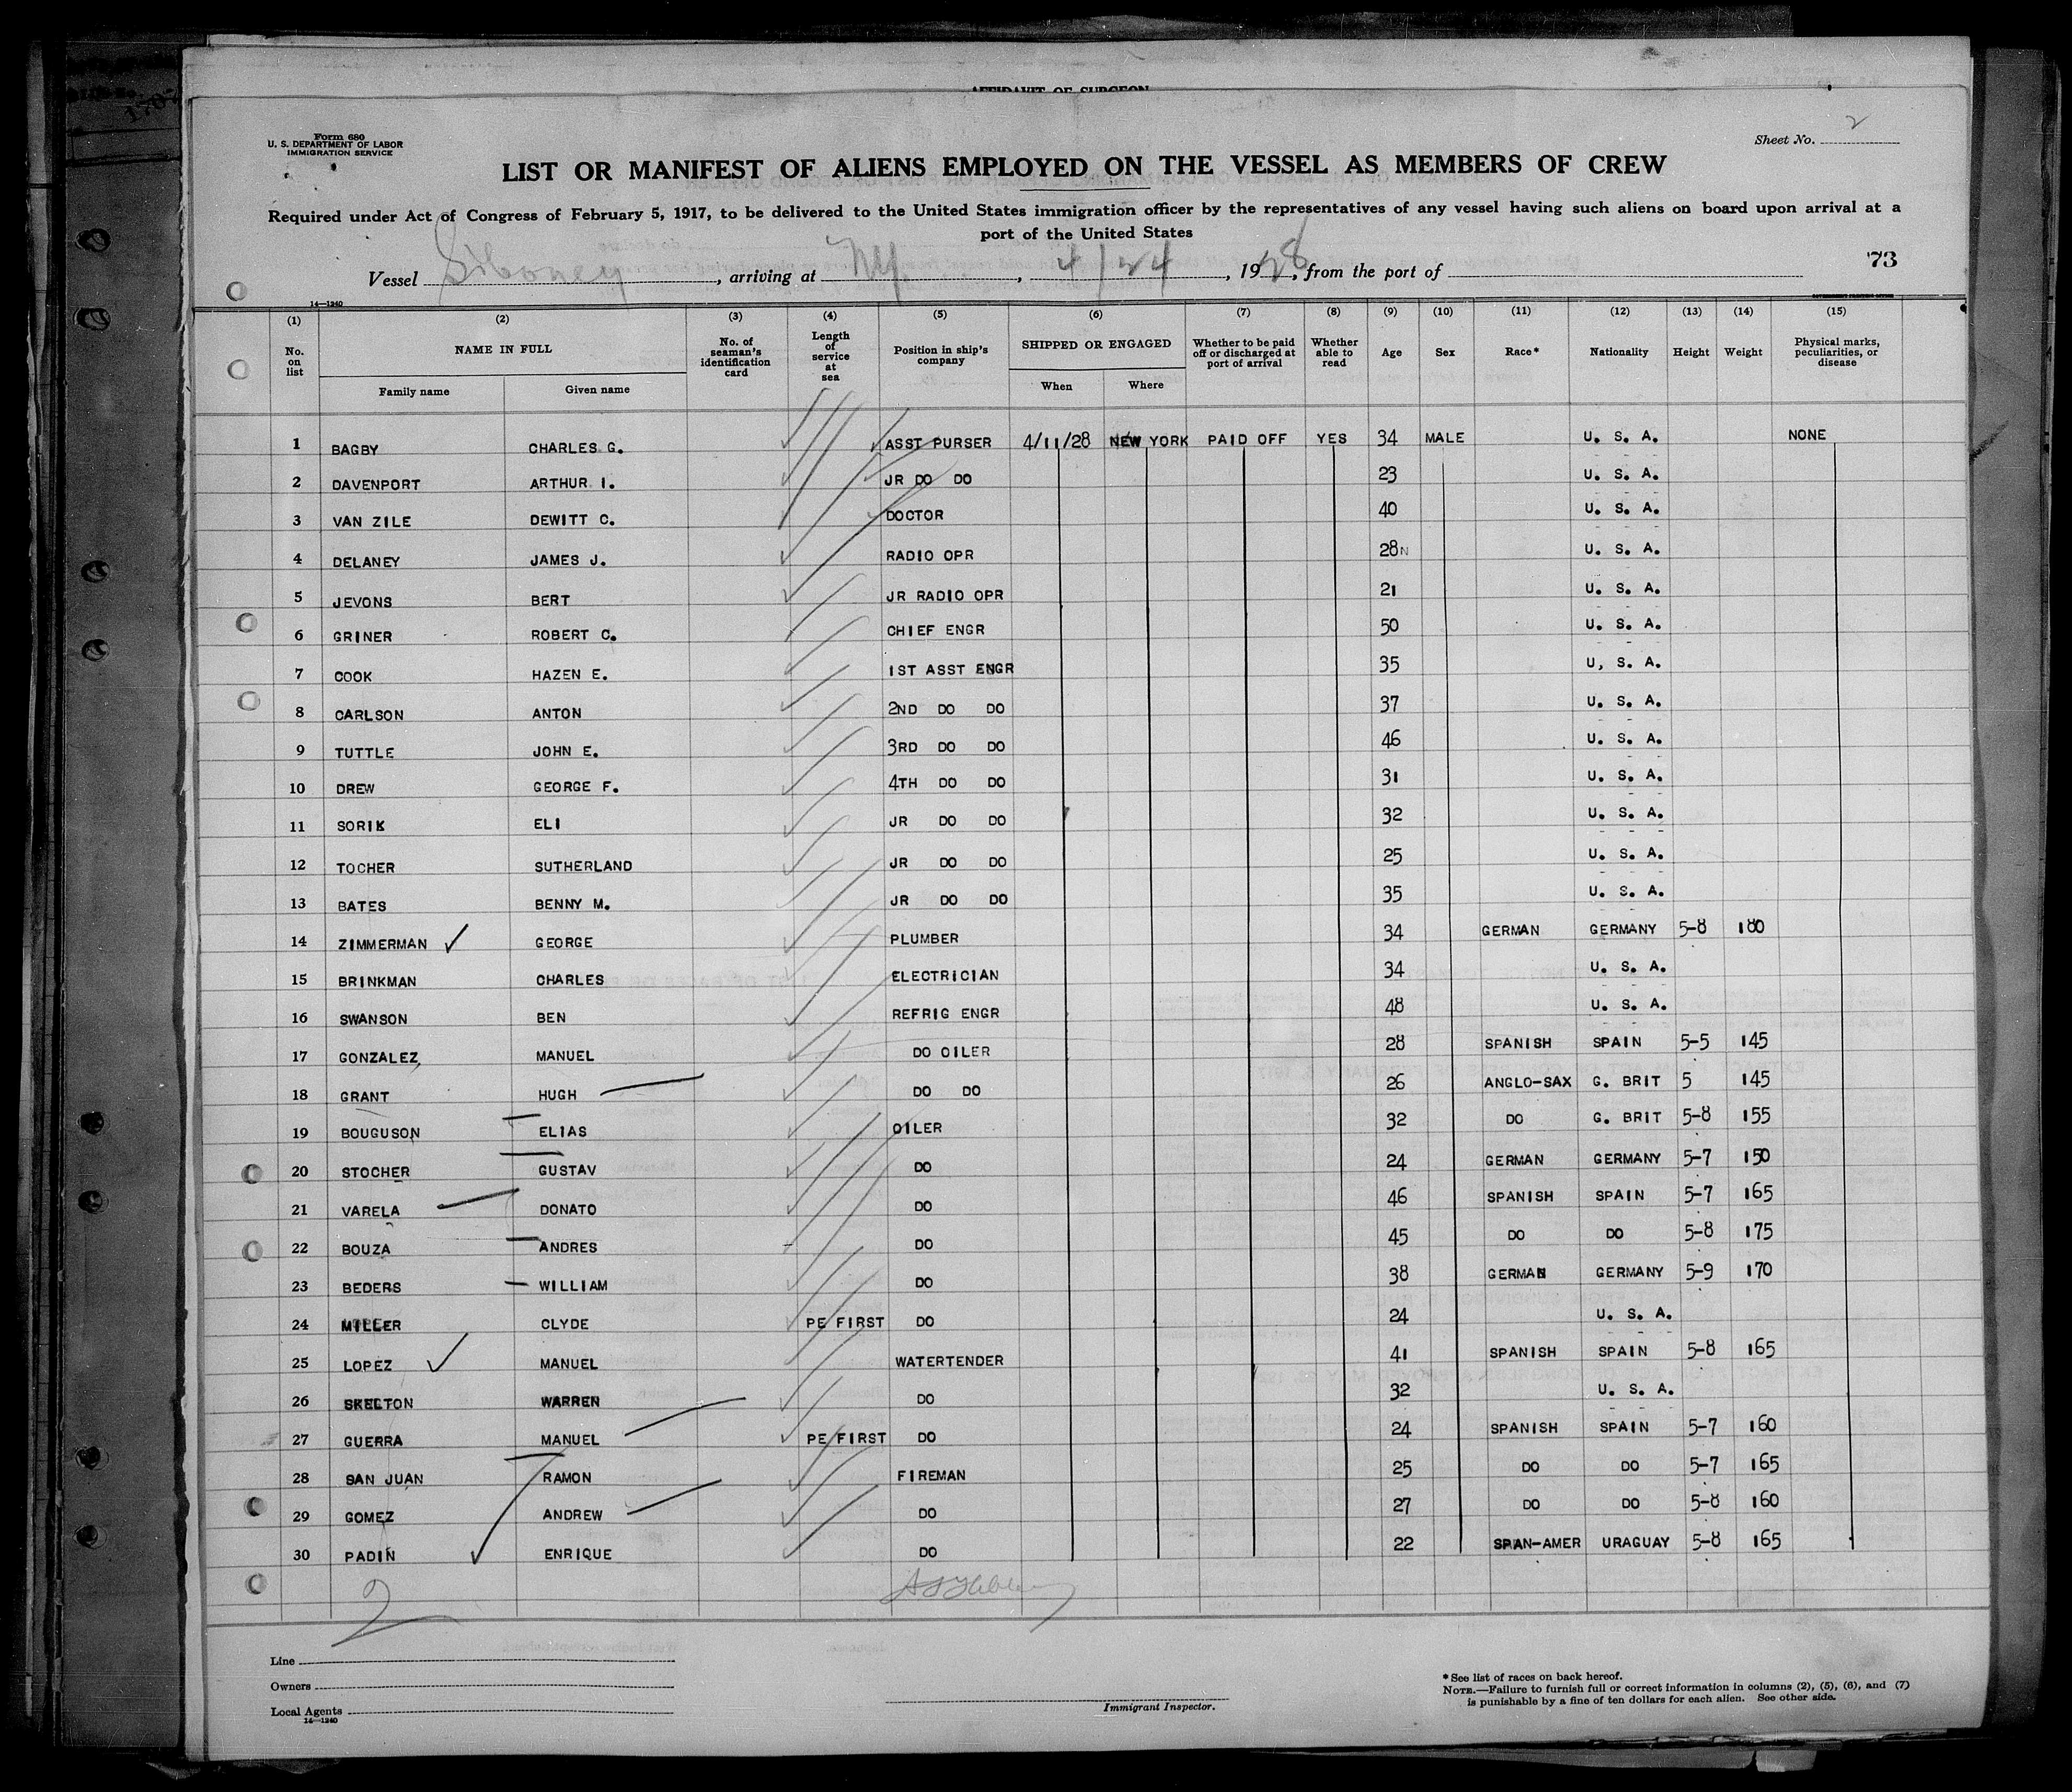 AFFIDAVIT OF SURGEON
Form 680
U. S. DEPARTMENT OF LABOR
IMMIGRATION SERVICE
Sheet No. 2
LIST OR MANIFEST OF ALIENS EMPLOYED ON THE VESSEL AS MEMBERS OF CREW
Required under Act of Congress of February 5, 1917, to be delivered to the United States immigration officer by the representatives of any vessel having such aliens on board upon arrival at a
port of the United States
Vessel Siboney, arriving at NY, 4/24, 1928, from the port of
73
14—1240
GOVERNMENT PRINTING OFFICE
(1) (2) (3) (4) (5) (6) (7) (8) (9) (10) (11) (12) (13) (14) (15)
No. on list NAME IN FULL Family name Given name No. of seaman's identification card Length of service at sea Position in ship's company SHIPPED OR ENGAGED When Where Whether to be paid off or discharged at port of arrival Whether able to read Age Sex Race* Nationality Height Weight Physical marks, peculiarities, or disease
1 BAGBY CHARLES G. ASST PURSER 4/11/28 NEW YORK PAID OFF YES 34 MALE U. S. A. NONE
2 DAVENPORT ARTHUR I. JR DO DO 23 U. S. A.
3 VAN ZILE DEWITT C. DOCTOR 40 U. S. A.
4 DELANEY JAMES J. RADIO OPR 28N U. S. A.
5 JEVONS BERT JR RADIO OPR 21 U. S. A.
6 GRINER ROBERT C. CHIEF ENGR 50 U. S. A.
7 COOK HAZEN E. 1ST ASST ENGR 35 U, S. A.
8 CARLSON ANTON 2ND DO DO 37 U. S. A.
9 TUTTLE JOHN E. 3RD DO DO 46 U. S. A.
10 DREW GEORGE F. 4TH DO DO 31 U. S. A.
11 SORIK ELI JR DO DO 32 U. S. A.
12 TOCHER SUTHERLAND JR DO DO 25 U. S. A.
13 BATES BENNY M. JR DO DO 35 U. S. A.
14 ZIMMERMAN GEORGE PLUMBER 34 GERMAN GERMANY 5-8 180
15 BRINKMAN CHARLES ELECTRICIAN 34 U. S. A.
16 SWANSON BEN REFRIG ENGR 48 U. S. A.
17 GONZALEZ MANUEL DO OILER 28 SPANISH SPAIN 5-5 145
18 GRANT HUGH DO DO 26 ANGLO-SAX G. BRIT 5 145
19 BOUGUSON ELIAS OILER 32 DO G. BRIT 5-8 155
20 STOCHER GUSTAV DO 24 GERMAN GERMANY 5-7 150
21 VARELA DONATO DO 46 SPANISH SPAIN 5-7 165
22 BOUZA ANDRES DO 45 DO DO 5-8 175
23 BEDERS WILLIAM DO 38 GERMAN GERMANY 5-9 170
24 MILLER CLYDE PE FIRST DO 24 U. S. A.
25 LOPEZ MANUEL WATERTENDER 41 SPANISH SPAIN 5-8 165
26 SKELTON WARREN DO 32 U. S. A.
27 GUERRA MANUEL PE FIRST DO 24 SPANISH SPAIN 5-7 160
28 SAN JUAN RAMON FIREMAN 25 DO DO 5-7 165
29 GOMEZ ANDREW DO 27 DO DO 5-8 160
30 PADIN ENRIQUE DO 22 SPAN-AMER URAGUAY 5-8 165
2
Line
Owners
Local Agents
14—1240
Immigrant Inspector.
*See list of races on back hereof.
NOTE.—Failure to furnish full or correct information in columns (2), (5), (6), and (7)
is punishable by a fine of ten dollars for each alien. See other side.